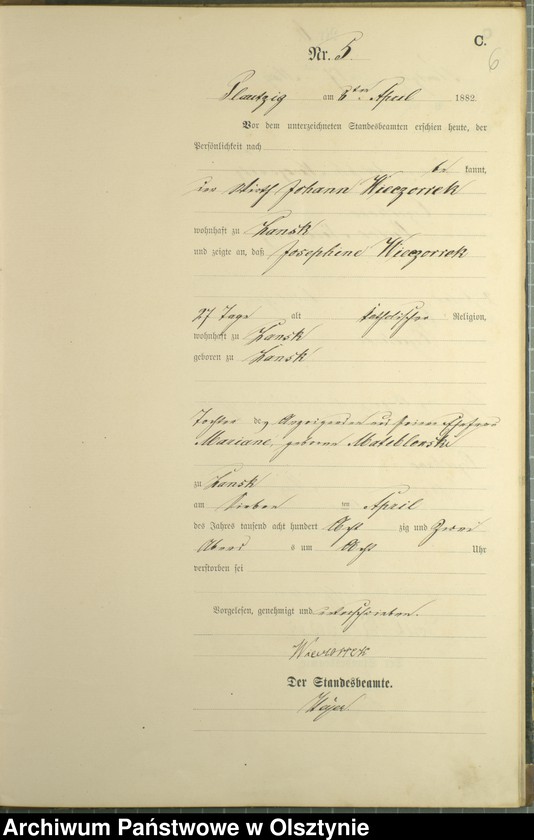 C.
6
Nr. 5.
Plautzig am 8ten April 1882.
Vor dem unterzeichneten Standesbeamten erschien heute, der
Persönlichkeit nach
be kannt,
der Wirth Johann Wieczorrek
wohnhaft zu Lansk
und zeigte an, daß Josephine Wieczorrek
27 Tage alt katholischer Religion,
wohnhaft zu Lansk
geboren zu Lansk
Tochter des Anzeigenden und seiner Ehefrau
Mariane, geborne
zu Lansk
am sieben ten April
des Jahres tausend acht hundert Acht zig und Zwei
Abend s um Acht Uhr
verstorben sei
Vorgelesen, genehmigt und unterschrieben.
Wieczorrek
Der Standesbeamte.
Archiwum Państwowe w Olsztynie